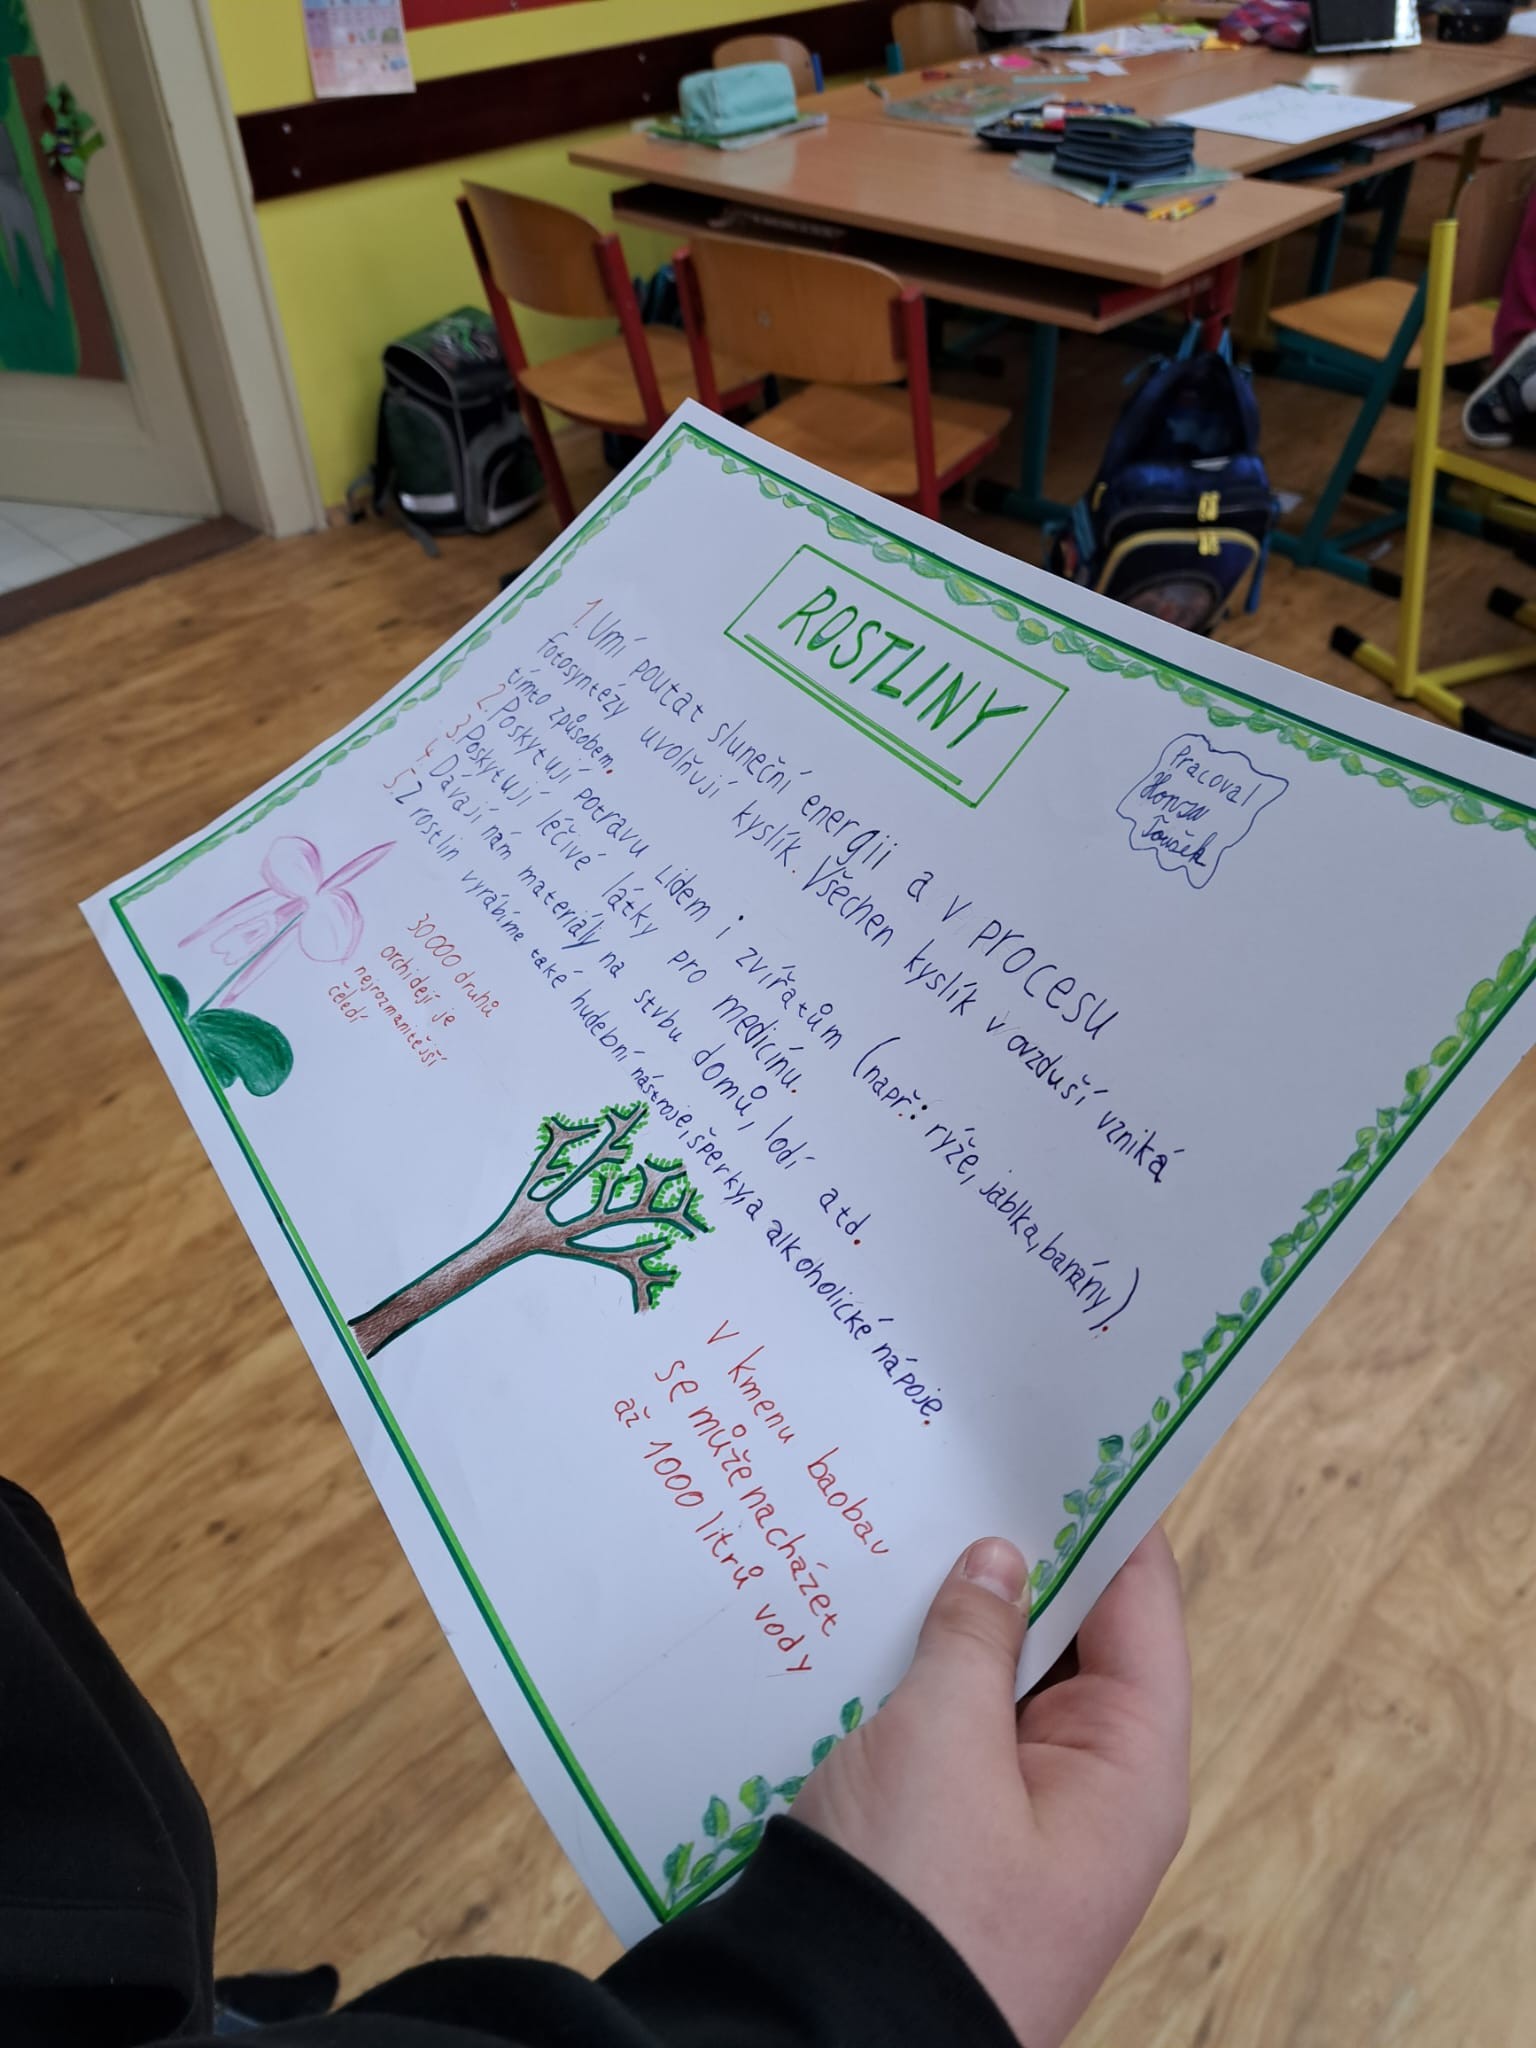 ROSTLINY
Pracoval
Honza
Toušek
1. Umí poutat sluneční energii a v procesu
fotosyntézy uvolňují kyslík. Všechen kyslík v ovzduší vzniká
tímto způsobem.
2. Poskytují potravu lidem i zvířatům (např.: rýže, jablka, banány).
3. Poskytují léčivé látky pro medicínu.
4. Dávají nám materiály na stvbu domů, lodí atd.
5. Z rostlin vyrábíme také hudební nástroje, šperky, a alkoholické nápoje.
30000 druhů
orchidejí je
nejrozmanitější
čeledí
V kmenu baobau
se může nacházet
až 1000 litrů vody